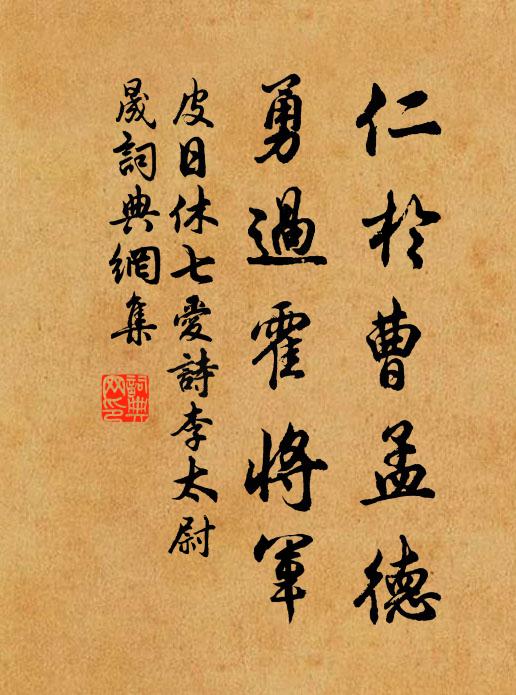 仁於曹孟德
勇過霍將軍
皮日休七愛詩李太尉
晟詞典網集
詞典网印